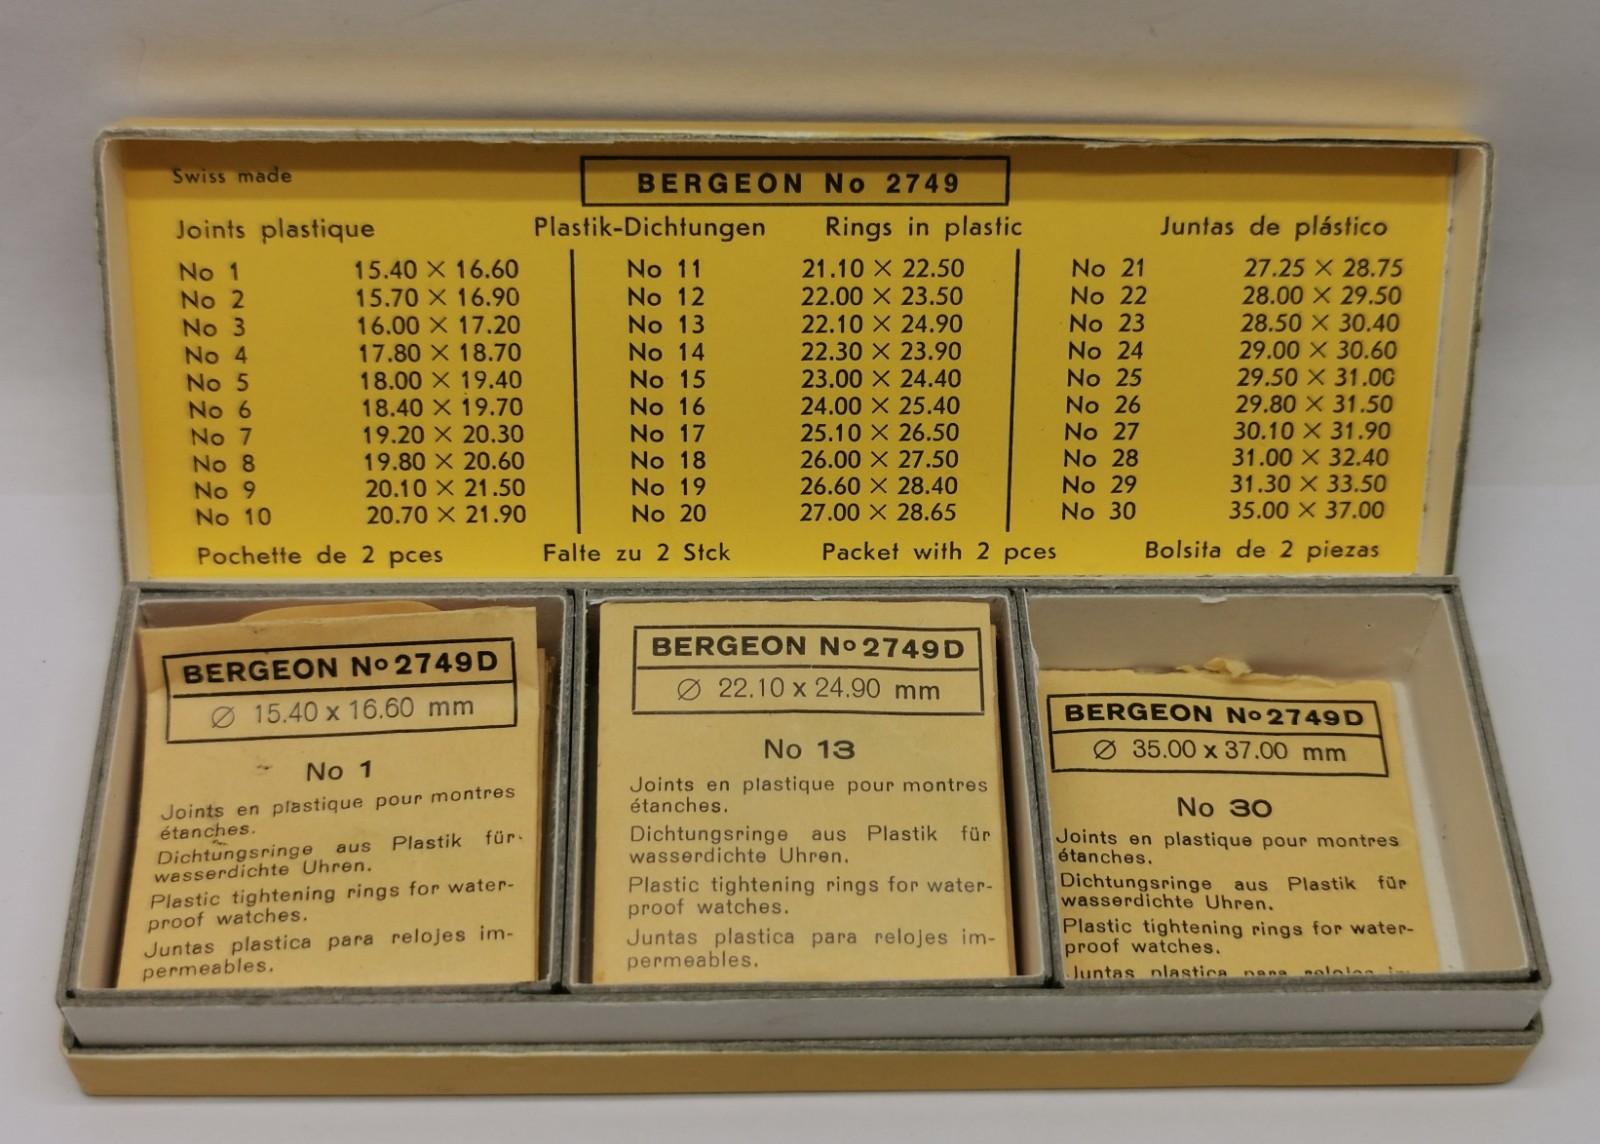 Swiss made
BERGEON No 2749
Joints plastique Plastik-Dichtungen Rings in plastic Juntas de plástico
No 1 15.40 × 16.60 No 11 21.10 × 22.50 No 21 27.25 × 28.75
No 2 15.70 × 16.90 No 12 22.00 × 23.50 No 22 28.00 × 29.50
No 3 16.00 × 17.20 No 13 22.10 × 24.90 No 23 28.50 × 30.40
No 4 17.80 × 18.70 No 14 22.30 × 23.90 No 24 29.00 × 30.60
No 5 18.00 × 19.40 No 15 23.00 × 24.40 No 25 29.50 × 31.00
No 6 18.40 × 19.70 No 16 24.00 × 25.40 No 26 29.80 × 31.50
No 7 19.20 × 20.30 No 17 25.10 × 26.50 No 27 30.10 × 31.90
No 8 19.80 × 20.60 No 18 26.00 × 27.50 No 28 31.00 × 32.40
No 9 20.10 × 21.50 No 19 26.60 × 28.40 No 29 31.30 × 33.50
No 10 20.70 × 21.90 No 20 27.00 × 28.65 No 30 35.00 × 37.00
Pochette de 2 pces Falte zu 2 Stck Packet with 2 pces Bolsita de 2 piezas
BERGEON No 2749D
∅ 15.40 x 16.60 mm
No 1
Joints en plastique pour montres
étanches.
Dichtungsringe aus Plastik für
wasserdichte Uhren.
Plastic tightening rings for water-
proof watches.
Juntas plastica para relojes im-
permeables.
BERGEON No 2749D
∅ 22.10 x 24.90 mm
No 13
Joints en plastique pour montres
étanches.
Dichtungsringe aus Plastik für
wasserdichte Uhren.
Plastic tightening rings for water-
proof watches.
Juntas plastica para relojes im-
permeables.
BERGEON No 2749D
∅ 35.00 x 37.00 mm
No 30
Joints en plastique pour montres
étanches.
Dichtungsringe aus Plastik für
wasserdichte Uhren.
Plastic tightening rings for water-
proof watches.
Juntas plastica para relojes im-